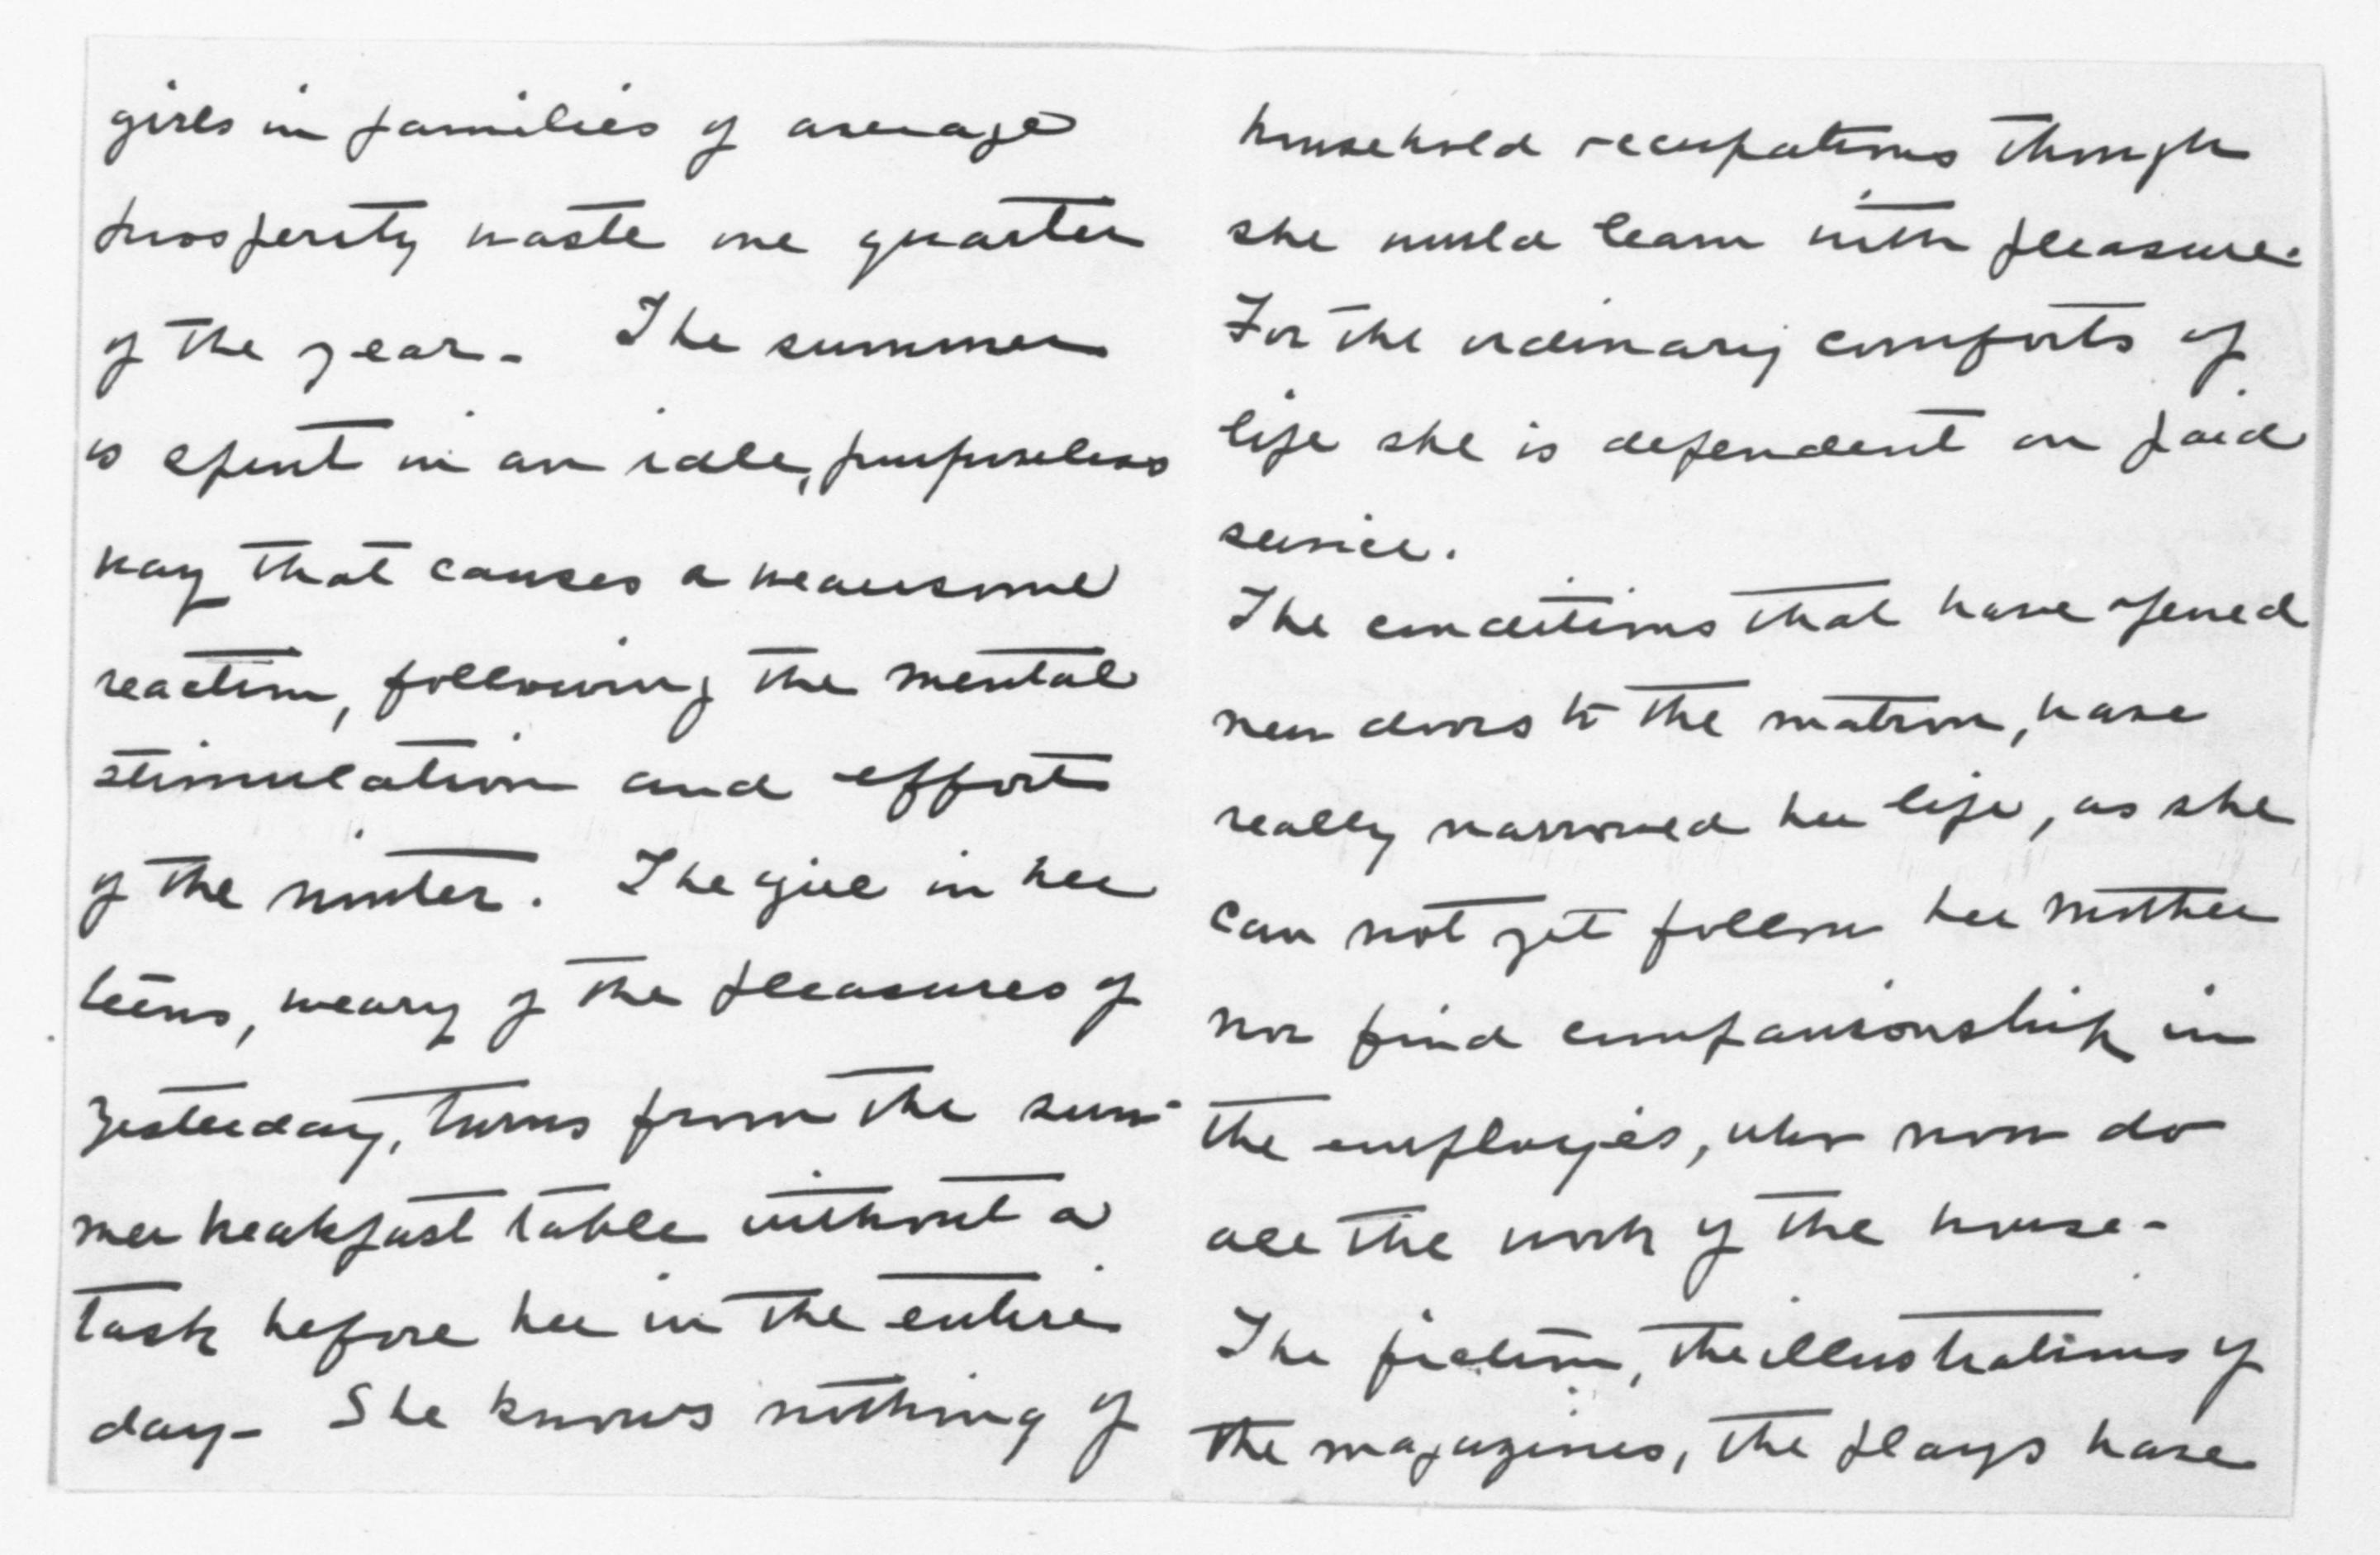 girls in families of average
prosperity waste one quarter
of the year. The summer
is spent in an idle, purposeless
way that causes a wearisome
reaction, following the mental
stimulation and effort
of the winter. The girl in her
teens, weary of the pleasures of
yesterday, turns from the sum-
mer breakfast table without a
task before her in the entire
day. She knows nothing of
household occupations though
she would learn with pleasure.
For the ordinary comforts of
life she is dependent on paid
service.
The conditions that have opened
new doors to the matron, have
really narrowed her life, as she
can not yet follow her mother
nor find companionship in
the employés, who now do
all the work of the house.
The fiction, the illustrations of
the magazines, the plays have